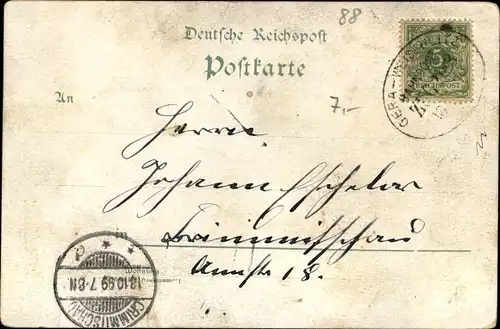 88
Deutsche Reichspost
Postkarte
An
7,-
5
REICHSPOST
GERA-
Herrn
Johann
in
Crimmitschau
18.
Wohnung
CRIMMITSCHAU
18.10.99.7-8N